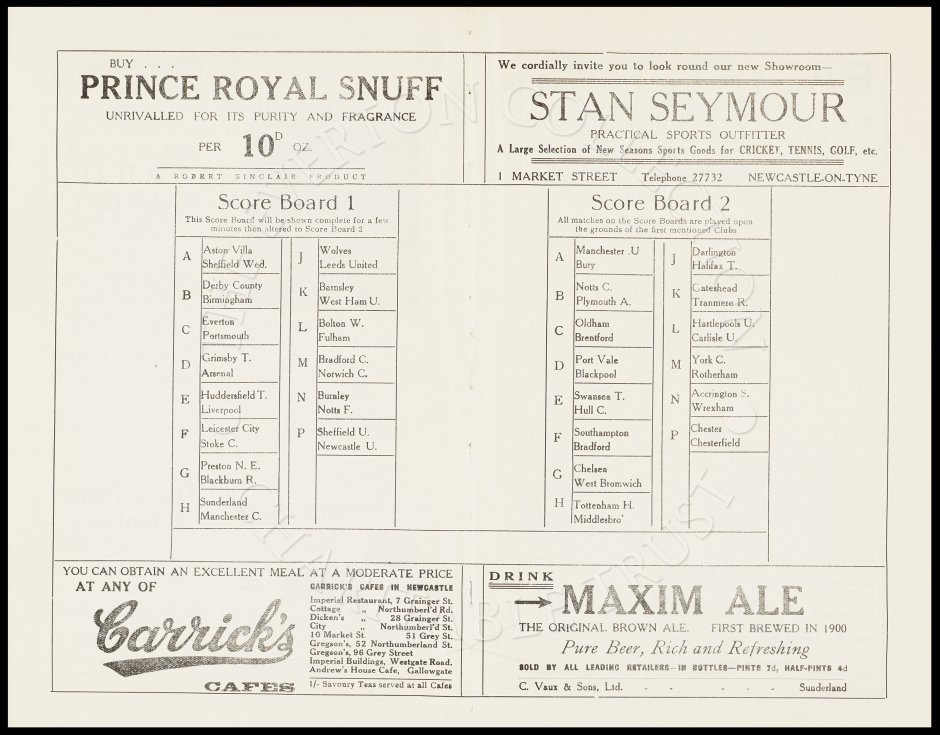 BUY . . .
PRINCE ROYAL SNUFF
UNRIVALLED FOR ITS PURITY AND FRAGRANCE
PER 10D OZ.
A ROBERT SINCLAIR PRODUCT
We cordially invite you to look round our new Showroom—
STAN SEYMOUR
PRACTICAL SPORTS OUTFITTER
A Large Selection of New Seasons Sports Goods for CRICKEY, TENNIS, GOLF, etc.
1 MARKET STREET Telephone 27732 NEWCASTLE-ON-TYNE
Score Board 1
This Score Board will be shown complete for a few
minutes then altered to Score Board 2
A Aston Villa
Sheffield Wed.
B Derby County
Birmingham
C Everton
Portsmouth
D Grimsby T.
Arsenal
E Huddersfield T.
Liverpool
F Leicester City
Stoke C.
G Preston N. E.
Blackburn R.
H Sunderland
Manchester C.
J Wolves
Leeds United
K Barnsley
West Ham U.
L Bolton W.
Fulham
M Bradford C.
Norwich C.
N Burnley
Notts F.
P Sheffield U.
Newcastle U.
Score Board 2
All matches on the Score Boards are played upon
the grounds of the first mentioned Clubs
A Manchester .U
Bury
B Notts C.
Plymouth A.
C Oldham
Brentford
D Port Vale
Blackpool
E Swansea T.
Hull C.
F Southampton
Bradford
G Chelsea
West Bromwich
H Tottenham H.
Middlesbro'
J Darlington
Halifax T.
K Gateshead
Tranmere R.
L Hartlepools U.
Carlisle U.
M York C.
Rotherham
N Accrington S.
Wrexham
P Chester
Chesterfield
YOU CAN OBTAIN AN EXCELLENT MEAL AT A MODERATE PRICE
AT ANY OF
Carrick's
CAFES
CARRICK'S CAFES IN NEWCASTLE
Imperial Restaurant, 7 Grainger St.
Cottage „ Northumberl'd Rd.
Dicken's „ 28 Grainger St.
City „ Northumberl'd St.
10 Market St. 51 Grey St.
Gregson's, 52 Northumberland St.
Gregson's, 96 Grey Street
Imperial Buildings, Westgate Road.
Andrew's House Cafe, Gallowgate
1/- Savoury Teas served at all Cafes
DRINK
MAXIM ALE
THE ORIGINAL BROWN ALE. FIRST BREWED IN 1900
Pure Beer, Rich and Refreshing
SOLD BY ALL LEADING RETAILERS—IN BOTTLES—PINTS 7d, HALF-PINTS 4d
C. Vaux & Sons, Ltd. - - - - Sunderland